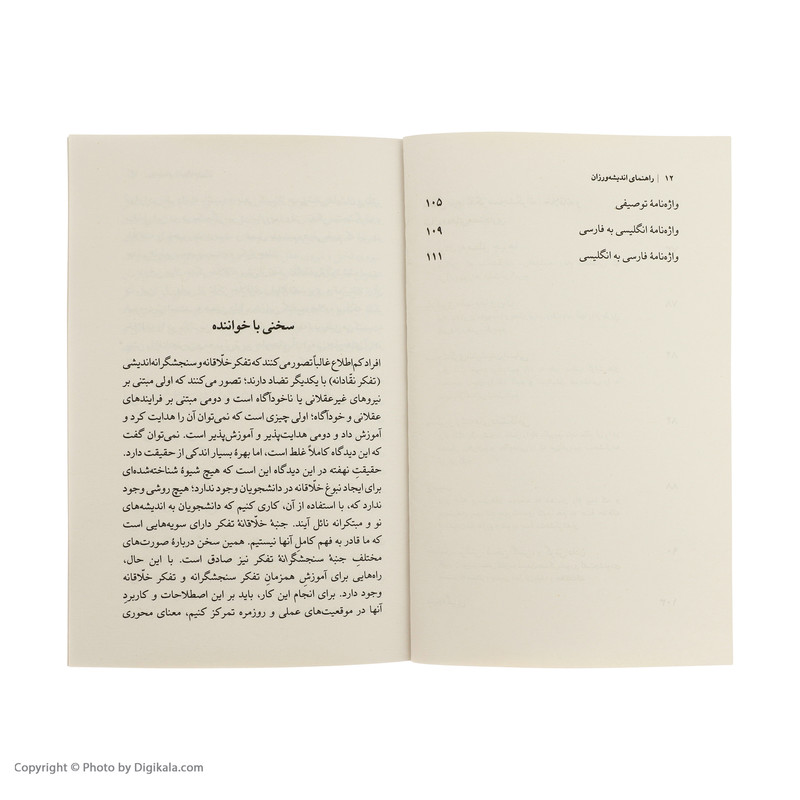 ۱۲ | راهنمای اندیشه‌ورزان
واژه‌نامهٔ توصیفی ۱۰۵
واژه‌نامهٔ انگلیسی به فارسی ۱۰۹
واژه‌نامهٔ فارسی به انگلیسی ۱۱۱
سخنی با خواننده
افراد کم‌اطلاع غالباً تصور می‌کنند که تفکر خلّاقانه و سنجشگرانه‌اندیشی
(تفکر نقّادانه) با یکدیگر تضاد دارند؛ تصور می‌کنند که اولی مبتنی بر
نیروهای غیرعقلانی یا ناخودآگاه است و دومی مبتنی بر فرایندهای
عقلانی و خودآگاه؛ اولی چیزی است که نمی‌توان آن را هدایت کرد و
آموزش داد و دومی هدایت‌پذیر و آموزش‌پذیر است. نمی‌توان گفت
که این دیدگاه کاملاً غلط است، اما بهرهٔ بسیار اندکی از حقیقت دارد.
حقیقتِ نهفته در این دیدگاه این است که هیچ شیوهٔ شناخته‌شده‌ای
برای ایجاد نبوغ خلّاقانه در دانشجویان وجود ندارد؛ هیچ روشی وجود
ندارد که، با استفاده از آن، کاری کنیم که دانشجویان به اندیشه‌های
نو و مبتکرانه نائل آیند. جنبهٔ خلّاقانهٔ تفکر دارای سویه‌هایی است
که ما قادر به فهم کاملِ آنها نیستیم. همین سخن دربارهٔ صورت‌های
مختلفِ جنبهٔ سنجشگرانهٔ تفکر نیز صادق است. با این حال،
راه‌هایی برای آموزشِ همزمانِ تفکر سنجشگرانه و تفکر خلّاقانه
وجود دارد. برای انجام این کار، باید بر این اصطلاحات و کاربردِ
آنها در موقعیت‌های عملی و روزمره تمرکز کنیم، معنای محوری
Copyright © Photo by Digikala.com